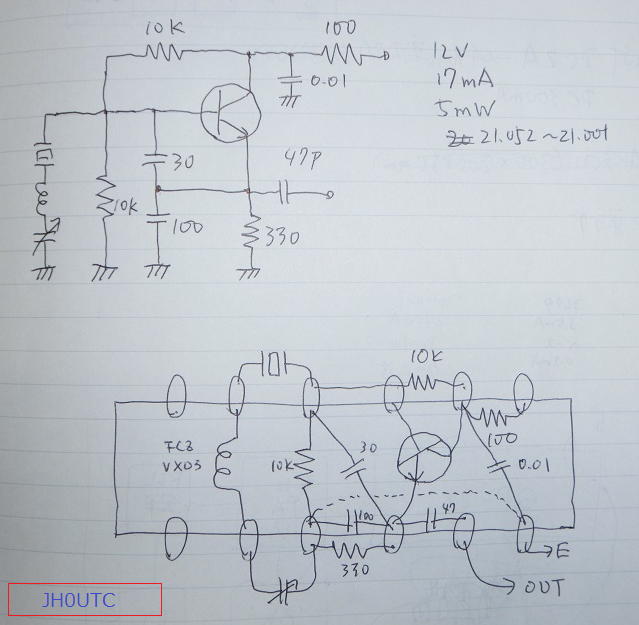 10K
100
12V
0.01
17mA
5mW
21.052~21.001
30
47P
10K
100
330
10K
FCZ
VX03
10K
30
100
0.01
100
47
330
E
OUT
JH0UTC